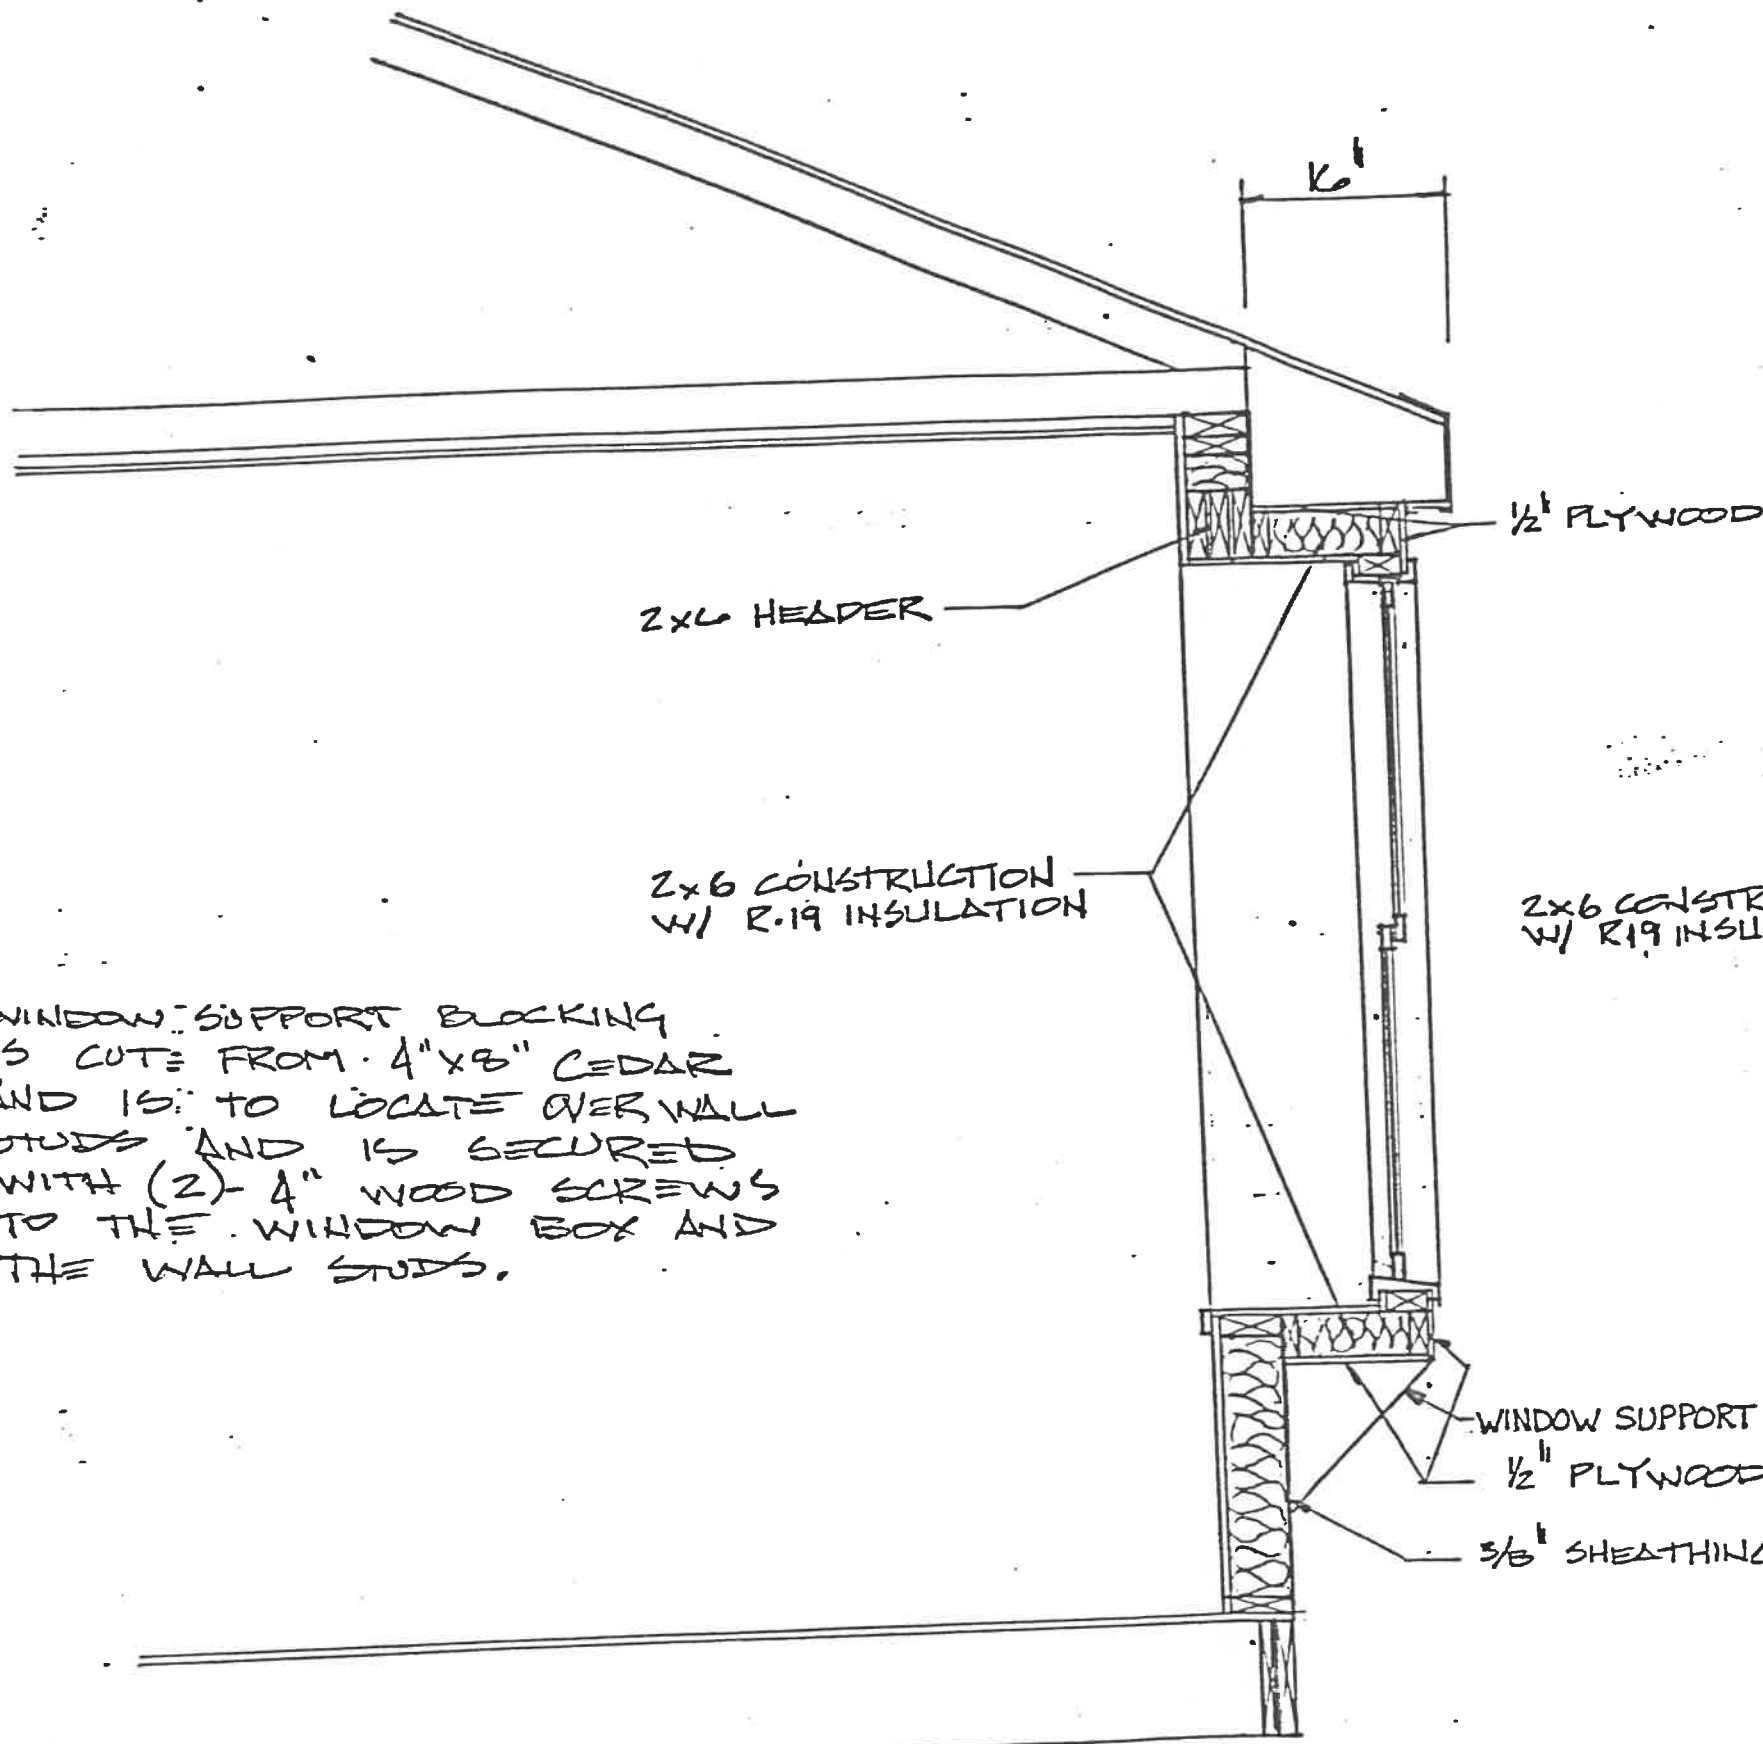 16"
1/2" PLYWOOD
2x6 HEADER
2x6 CONSTRUCTION
W/ R-19 INSULATION
2x6 CONSTR
W/ R19 INSU
WINDOW SUPPORT BLOCKING
S CUT FROM 4"x8" CEDAR
AND IS TO LOCATE OVER WALL
STUDS AND IS SECURED
WITH (2)- 4" WOOD SCREWS
TO THE WINDOW BOX AND
THE WALL STUDS.
WINDOW SUPPORT
1/2" PLYWOOD
5/8" SHEATHING